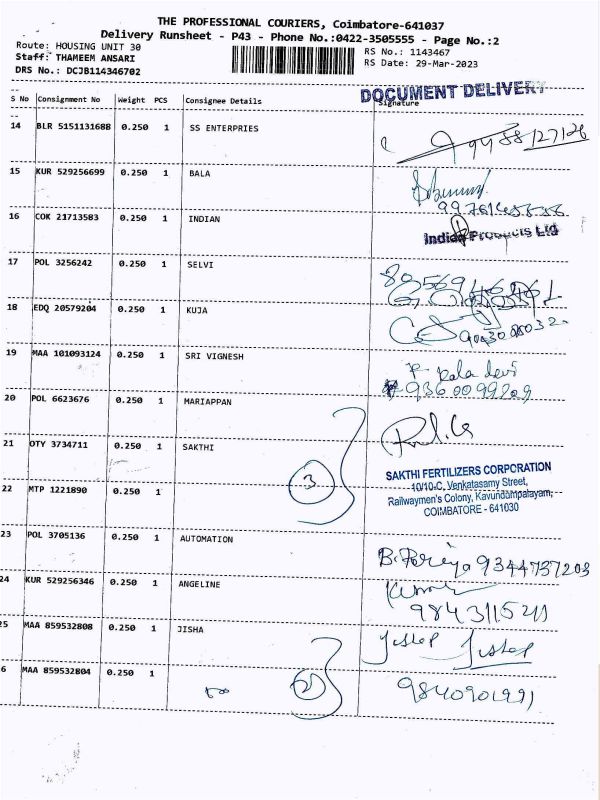 THE PROFESSIONAL COURIERS, Coimbatore-641037
Delivery Runsheet - P43 - Phone No.:0422-3505555 - Page No.:2
Route: HOUSING UNIT 30
RS No.: 1143467
Staff: THAMEEM ANSARI
RS Date: 29-Mar-2023
DRS No.: DCJB114346702
DOCUMENT DELIVERY
S No Consignment No Weight PCS Consignee Details Signature
14 BLR 5151131688 0.250 1 SS ENTERPRIES
15 KUR 529256699 0.250 1 BALA
16 COK 21713583 0.250 1 INDIAN
Products Ltd
17 POL 3256242 0.250 1 SELVI
18 EDQ 20579204 0.250 1 KUJA
19 MAA 101093124 0.250 1 SRI VIGNESH
P. Kala devi
9360099209
20 POL 6623676 0.250 1 MARIAPPAN
21 OTY 3734711 0.250 1 SAKTHI
3
SAKTHI FERTILIZERS CORPORATION
10/10-C, Venkatasamy Street,
Railwaymen's Colony, Kavundampalayam,
COIMBATORE - 641030
22 MTP 1221890 0.250 1
23 POL 3705136 0.250 1 AUTOMATION
9344737203
24 KUR 529256346 0.250 1 ANGELINE
25 MAA 859532808 0.250 1 JISHA
6 MAA 859532804 0.250 1
2
9840901991